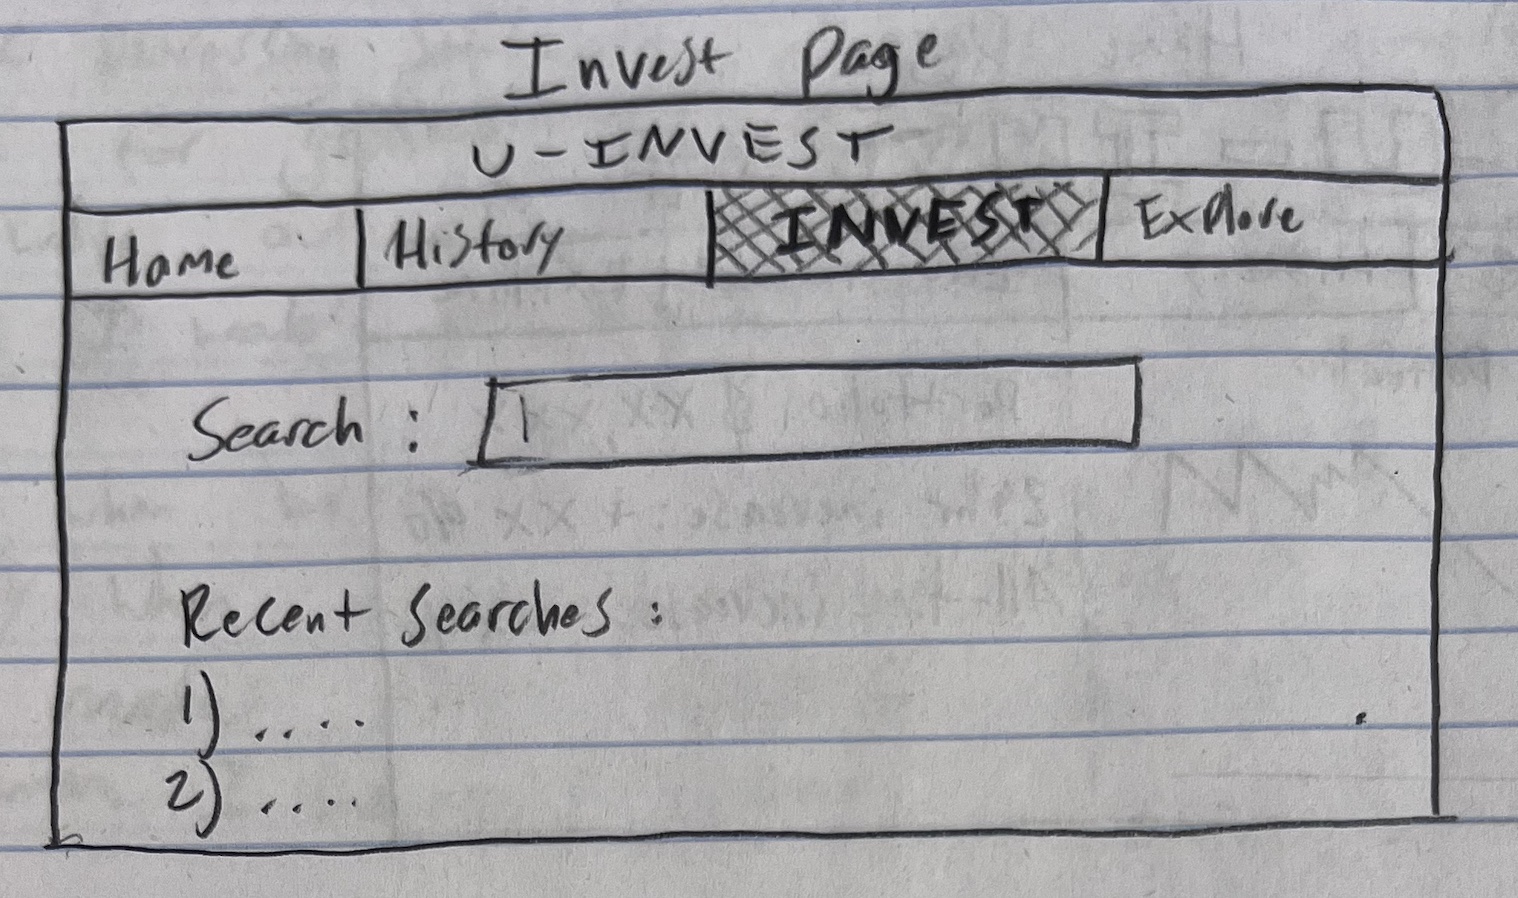 Invest Page
U-INVEST
Home History INVEST Explore
Search :
Recent Searches :
1) ....
2) ....